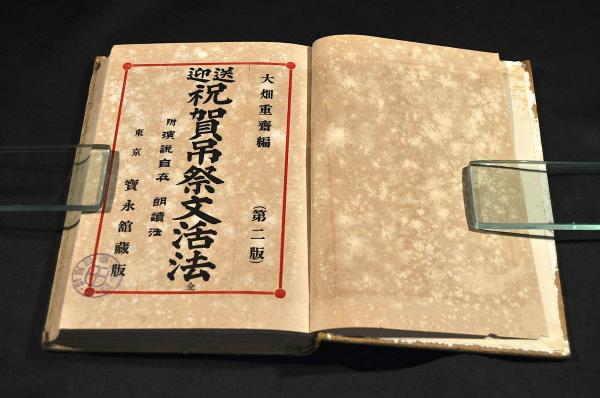 大畑重齋編
(第二版)
送迎
祝賀吊祭文活法
全
附演説自在 朗讀法
東京 寶永舘藏版